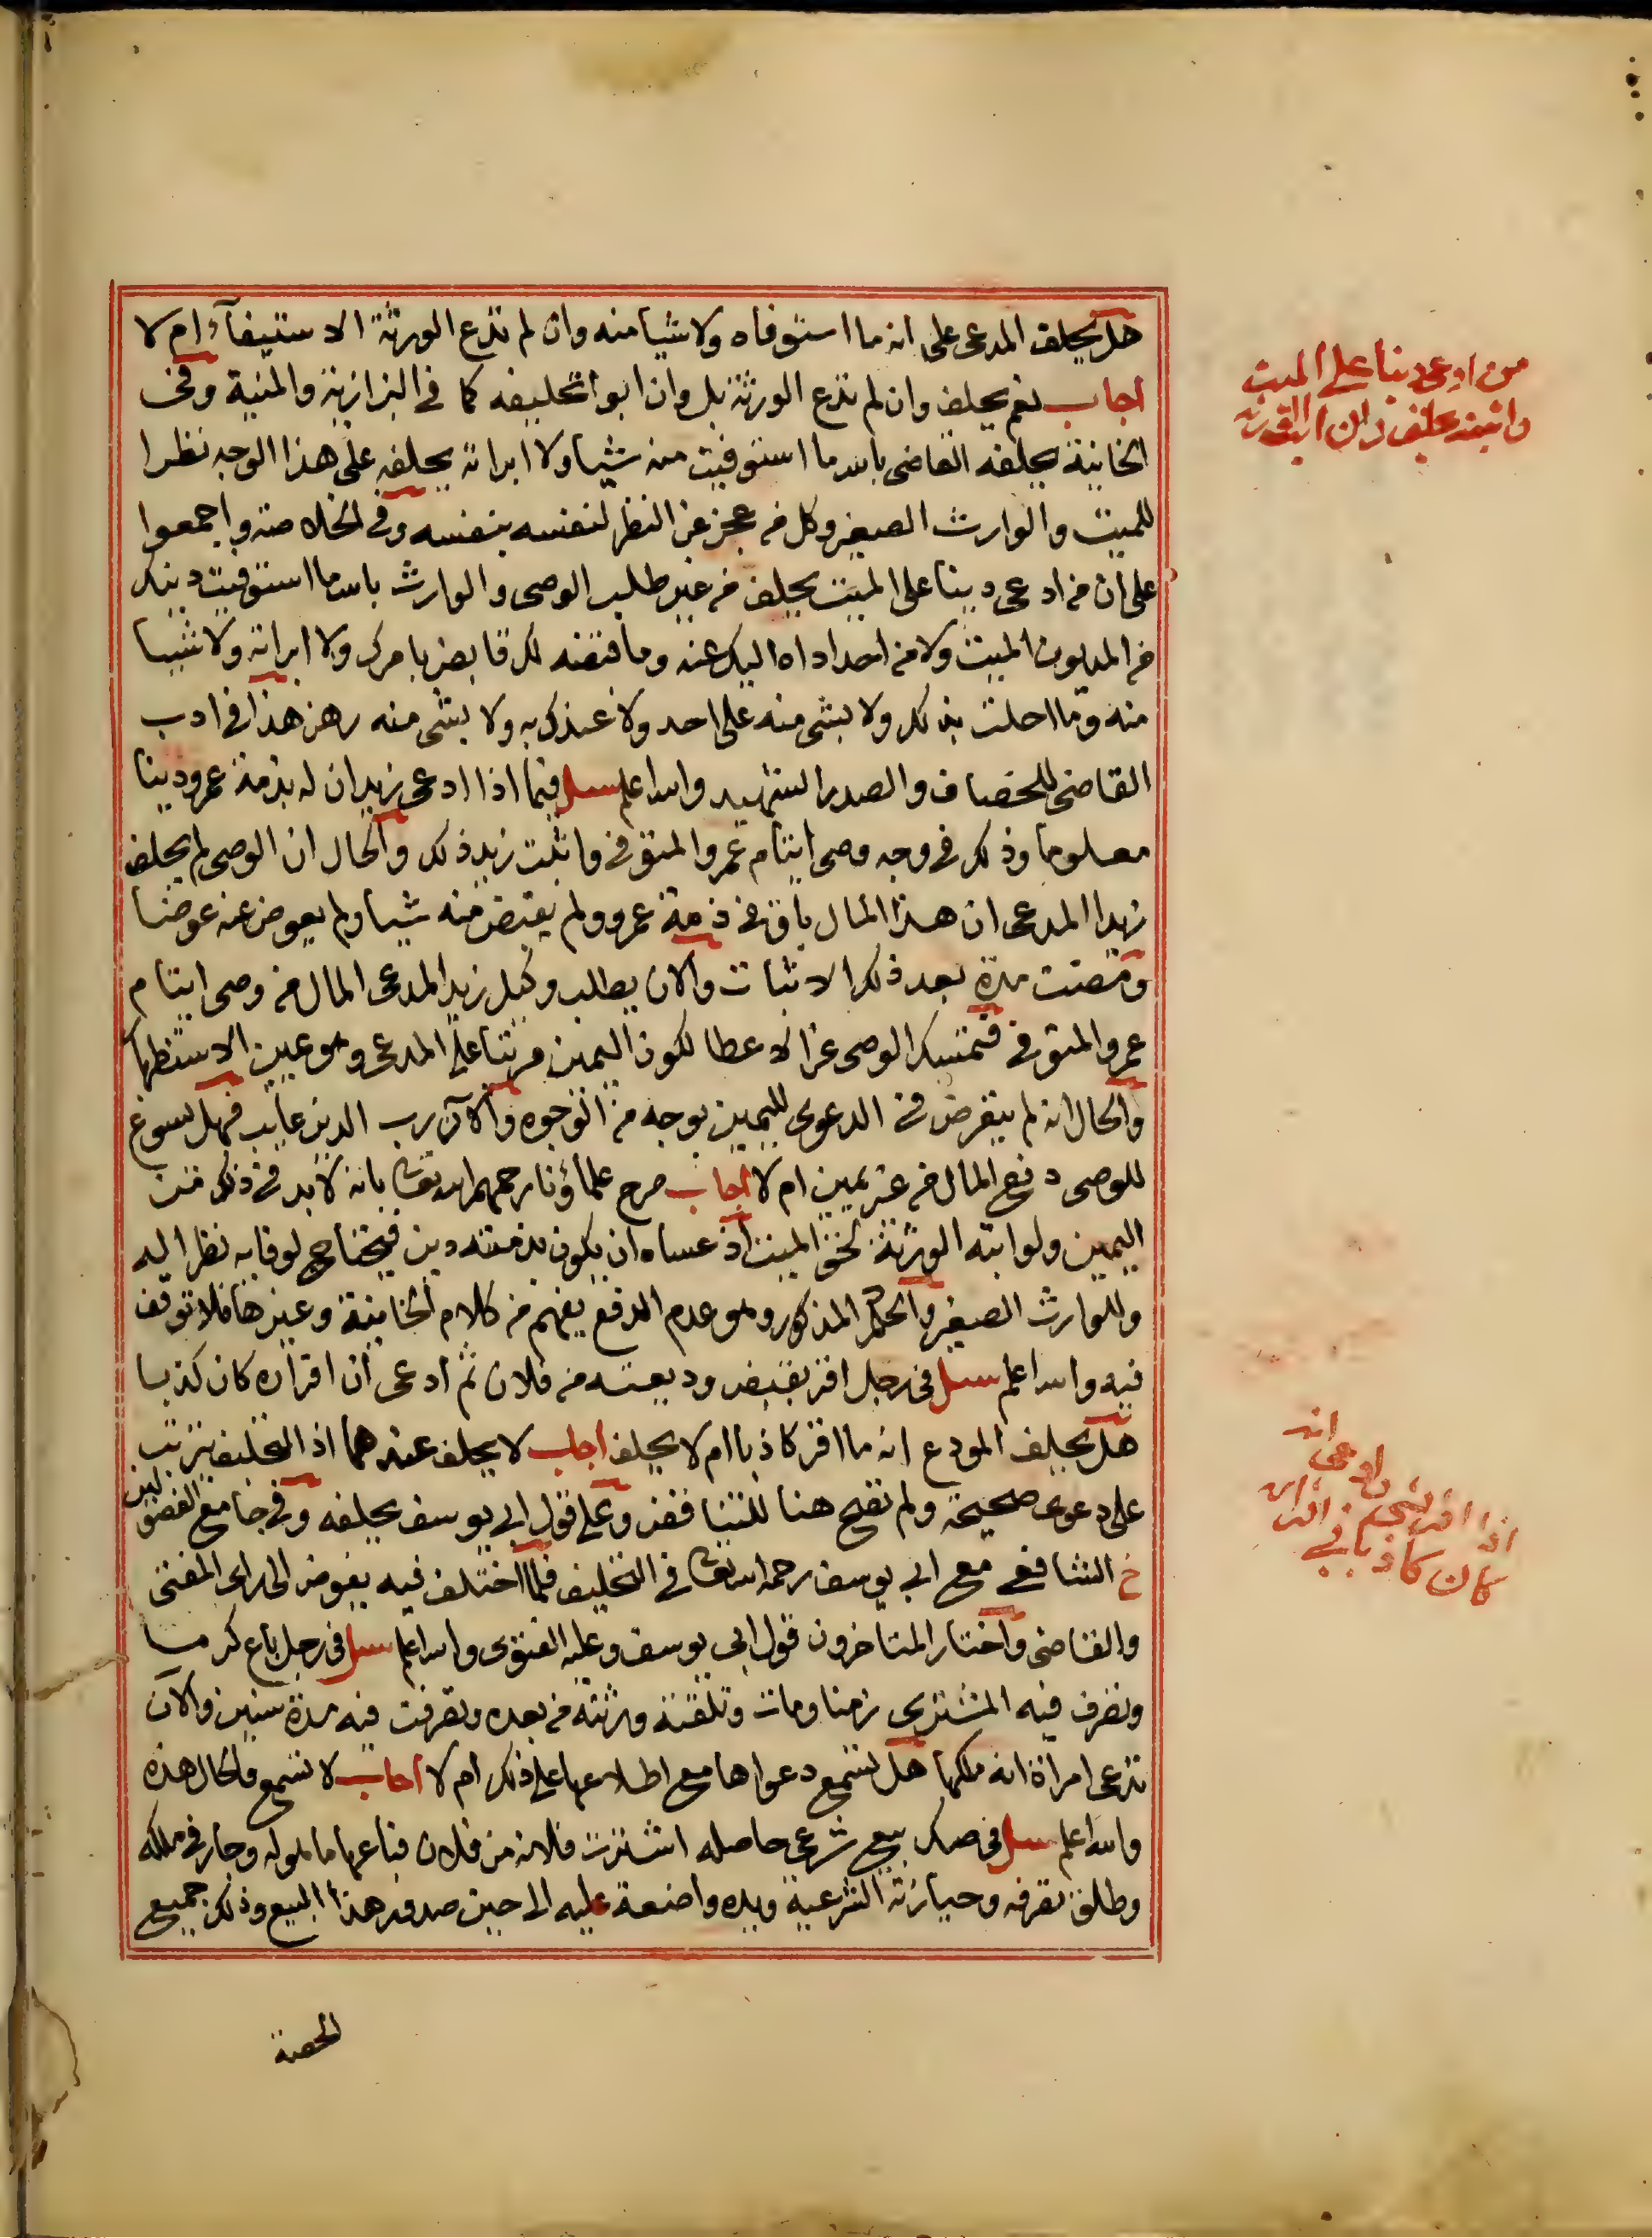 هل يحلف المدعى على انه ما استوفاه ولا شيا منه وان لم تدع الورثة الاستيفآء ام لا
اجاب نعم يحلف وان لم تدع الورثة بل وان ابوا تحليفه كما في البزازية والمنية وفي
الخانية يحلفه القاضى بالله ما استوفيت منه شيا ولا ابراته يحلفه على هذا الوجه نظرا
للميت والوارث الصغير وكل من عجز عن النظر لنفسه بنفسه وفي الخلاصة واجمعوا
على ان من ادعى دينا على الميت يحلف من غير طلب الوصى والوارث بالله ما استوفيت دينك
من المديون الميت ولا من احد اداه اليك عنه وما قبضه لك قابض بامرك ولا ابراته ولا شيا
منه وما احلت بذلك ولا بشى منه على احد ولا عندك به ولا بشى منه رهن هذا في ادب
القاضى للخصاف والصدر الشهيد والله اعلم سئل فيما اذا ادعى زيد ان له بذمة عمرو دينا
معلوما وذلك في وجه وصى ايتام عمرو المتوفى واثبت زيد ذلك والحال ان الوصى لم يحلف
زيدا المدعى ان هذا المال باق في ذمة عمرو ولم يقبض منه شيا ولم يعوض عنه عوضا
ومضت مدة بعد ذلك الاثبات والان يطلب وكيل زيد المدعى المال من وصى ايتام
عمرو المتوفى فتمسك الوصى عن الاعطا لكون اليمين مرتبا على المدعى وهو يمين الاستظهار
والحال انه لم يتعرض في الدعوى لليمين بوجه من الوجوه والآن رب الدين غايب فهل يسوغ
للوصى دفع المال من غير يمين ام لا اجاب صرح علماؤنا رحمهم الله تعالى بانه لابد في ذلك من
اليمين ولو ابته الورثة لحق الميت اذ عساه ان يكون بذمته دين فيحتاج لوفايه نظرا اليه
وللوارث الصغير والحكم المذكور وهو عدم الدفع يفهم من كلام الخانية وغيرها فلا توقف
فيه والله اعلم سئل في رجل اقر بقبض وديعته من فلان ثم ادعى ان اقراره كان كذبا
هل يحلف المودع انه ما اقر كاذبا ام لا يحلف اجاب لا يحلف عندهما اذ التحليف يترتب
على دعوى صحيحة ولم تصح هنا للتناقض وعلى قول ابي يوسف يحلفه وفي جامع الفصولين
خ الشافعى مع ابي يوسف رحمه الله تعالى في التحليف فلما اختلف فيه يفوض الى راى المفتى
والقاضى واختار المتاخرون قول ابي يوسف وعليه الفتوى والله اعلم سئل في رجل باع كرما
وتصرف فيه المشترى زمنا ومات وتلقته ورثته من بعده وتصرفت فيه مدة سنين والآن
تدعى امراة انه ملكها هل تسمع دعواها مع اطلاعها على ذلك ام لا اجاب لا تسمع والحال هذه
والله اعلم سئل في صك بيع شرعى حاصله اشترت فلانه من فلان فباعها ما هو له وجار في ملكه
وطلق تصرفه وحيازته الشرعية ويده واضعة عليه الى حين صدور هذا البيع وذلك جميع
الحصة
من ادعى دينا على الميت
واثبته يحلف وان ابت الورثة
اذا اقر بشى ثم ادعى انه
كان كاذبا في اقراره